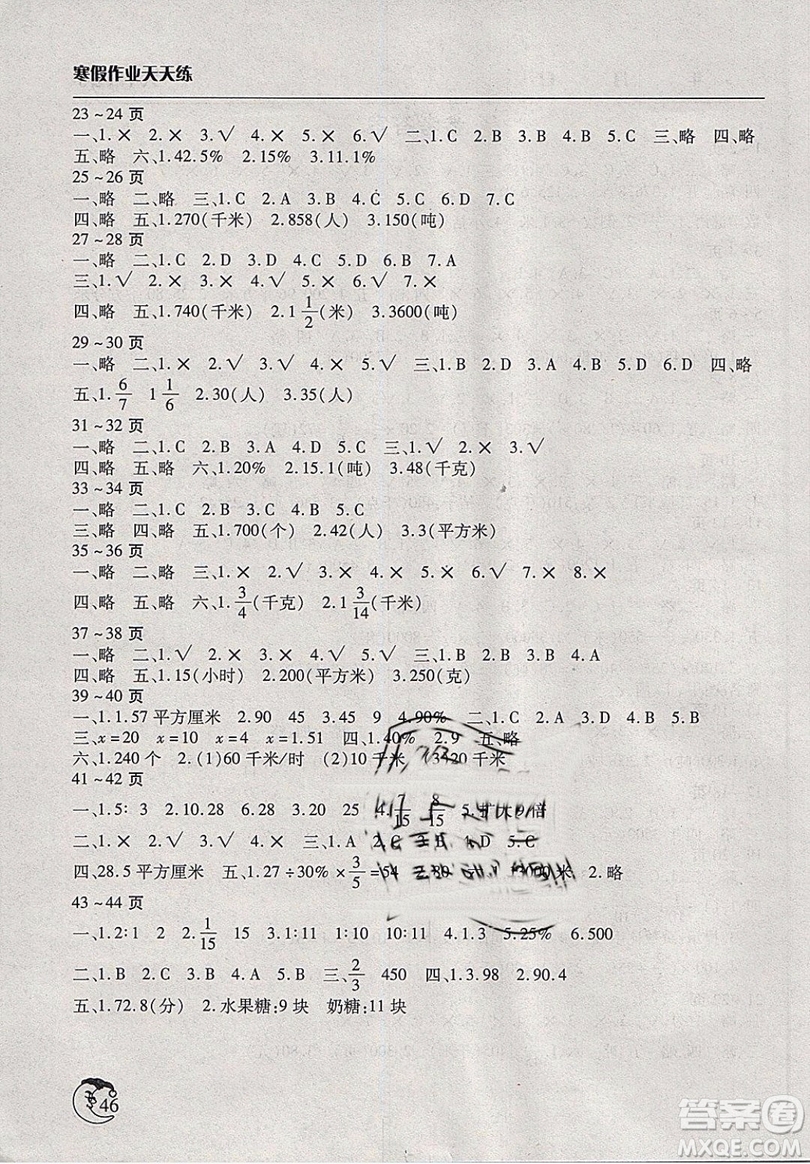 寒假作业天天练
23~24 页
一、1.× 2.× 3.√ 4.× 5.× 6.√ 二、1.C 2.B 3.C 4.B 三、略 四、略
五、略 六、1.42.5% 2.15% 3.11.1%
25~26 页
一、略 二、略 三、1.C 2.A 3.B 4.C 5.C 6.D 7.C
四、略 五、1.270(千米) 2.858(人) 3.150(吨)
27~28 页
一、略 二、1.C 2.A 3.D 4.C 5.D 6.B 7.A
三、1.√ 2.√ 3.× 4.× 5.√ 6.√ 7.×
四、略 五、1.740(千米) 2.1 1/2(米) 3.3600(吨)
29~30 页
一、略 二、1.× 2.√ 3.√ 4.√ 5.√ 三、1.B 2.D 3.A 4.D 5.D 四、略
五、1. 6/7 1 1/6 2.30(人) 3.35(人)
31~32 页
一、略 二、1.C 2.B 3.D 4.A 5.C 三、1.√ 2.× 3.√
四、略 五、略 六、1.20% 2.15.1(吨) 3.48(千克)
33~34 页
一、略 二、1.C 2.A 3.B 4.C 5.C
三、略 四、略 五、1.700(个) 2.42(人) 3.3(平方米)
35~36 页
一、略 二、略 三、1.× 2.√ 3.√ 4.√ 5.× 6.√ 7.× 8.×
四、略 五、略 六、1. 3/4(千克) 2.1 3/14(千米)
37~38 页
一、略 二、1.√ 2.× 3.× 4.× 5.√ 三、1.B 2.B 3.B 4.A
四、略 五、1.15(小时) 2.200(平方米) 3.250(克)
39~40 页
一、1.1.57 平方厘米 2.90 45 3.45 9 4.90% 二、1.C 2.A 3.D 4.B 5.B
三、x=20 x=10 x=4 x=1.51 四、1.40% 2.9 五、略
六、1.240 个 2.(1)60 千米/时 (2)10 千米 3.420 千米
41~42 页
一、1.5∶3 2.10.28 6.28 3.20 25 4. 7/15 8/15
二、1.× 2.√ 3.× 4.√ 5.√ 三、1.A 2.C 4.D 5.C
四、28.5 平方厘米 五、1.27÷30%×3/5=54 2.略
43~44 页
一、1.2∶1 2 2. 1/15 15 3.1∶11 1∶10 10∶11 4.1.3 5.25% 6.500
二、1.B 2.B 3.C 4.B 5.B 三、2/3 450 四、1.3.98 2.90.4
五、1.72.8(分) 2.水果糖:9 块 奶糖:11 块
46
答案圈
MXQE.COM